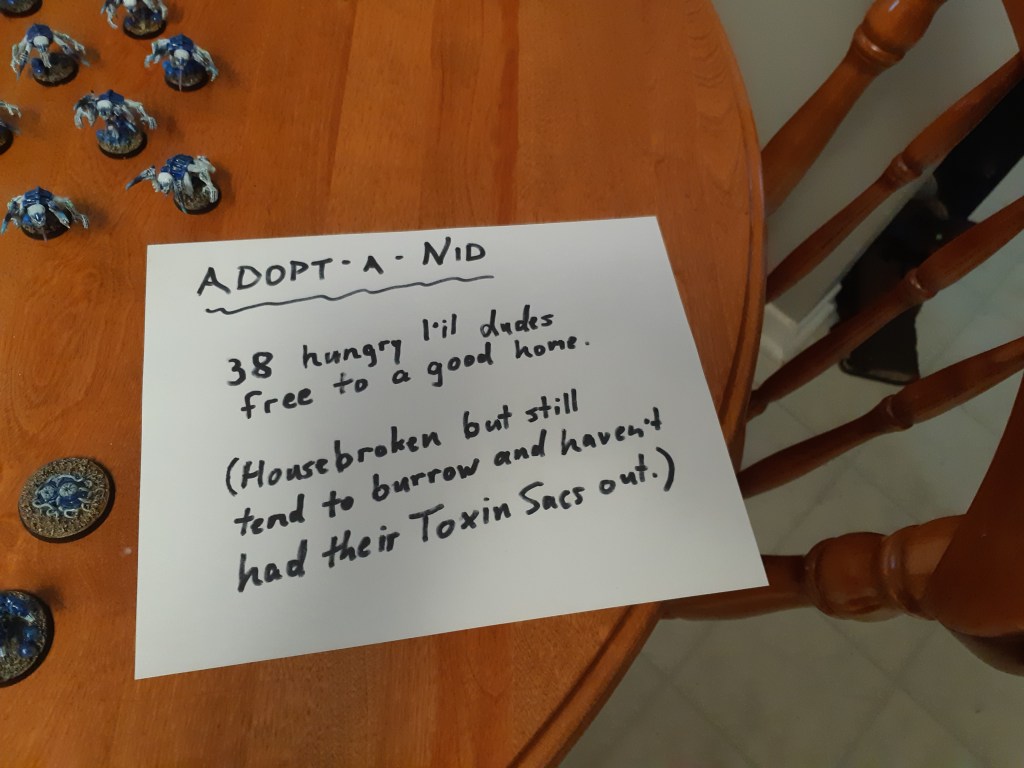 ADOPT-A-NID
38 hungry l'il dudes
free to a good home.
(Housebroken but still
tend to burrow and haven't
had their Toxin Sacs out.)